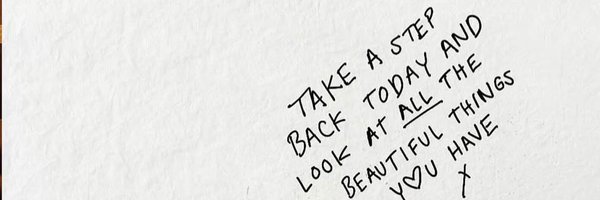 TAKE A STEP
BACK TODAY AND
LOOK AT ALL THE
BEAUTIFUL THINGS
Y♡U HAVE
X